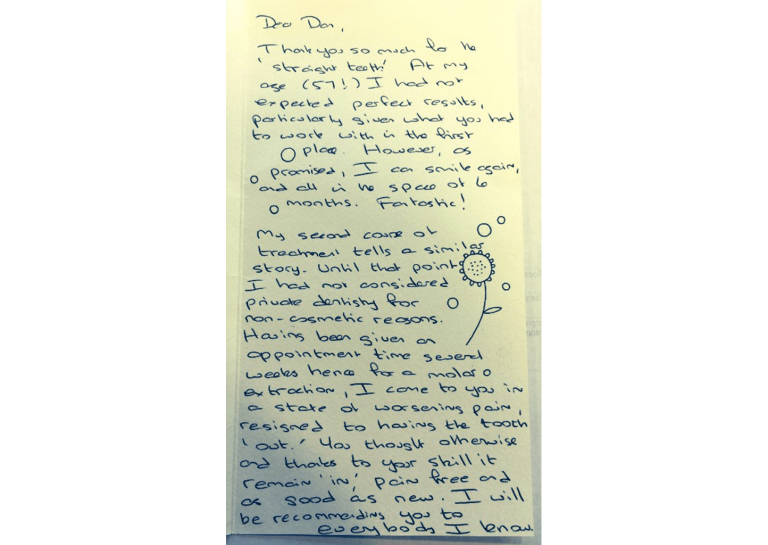 Dear Dan,
Thank you so much for the
'straight teeth'. At my
age (57!) I had not
expected perfect results,
particularly given what you had
to work with in the first
place. However, as
promised, I can smile again,
and all in the space of 6
months. Fantastic!
My second course of
treatment tells a similar
story. Until that point
I had not considered
private dentistry for
non-cosmetic reasons.
Having been given an
appointment time several
weeks hence for a molar
extraction, I came to you in
a state of worsening pain,
resigned to having the tooth
'out.' You thought otherwise
and thanks to your skill it
remain 'in', pain free and
as good as new. I will
be recommending you to
everybody I know.